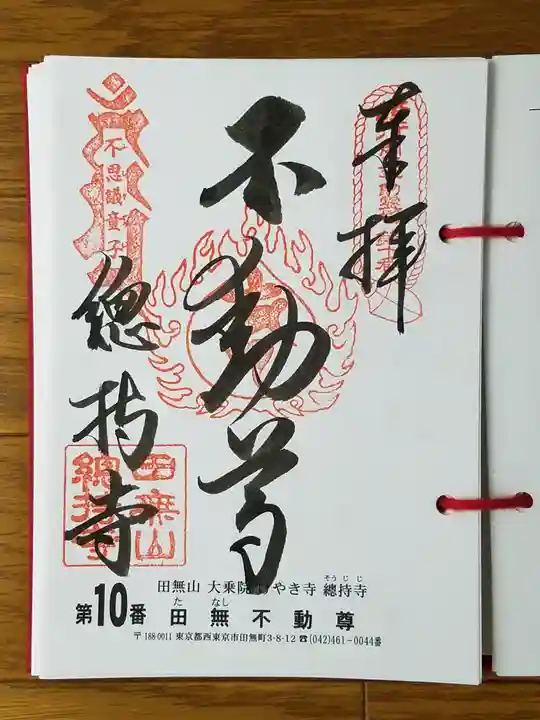 奉拝
不動尊
不思議童子
總持寺
田無山
總持寺
田無山 大乗院 けやき寺 總持寺
そうじじ
第10番 田無不動尊
たなし
〒188-0011 東京都西東京市田無町3-8-12 ☎(042)461-0044番